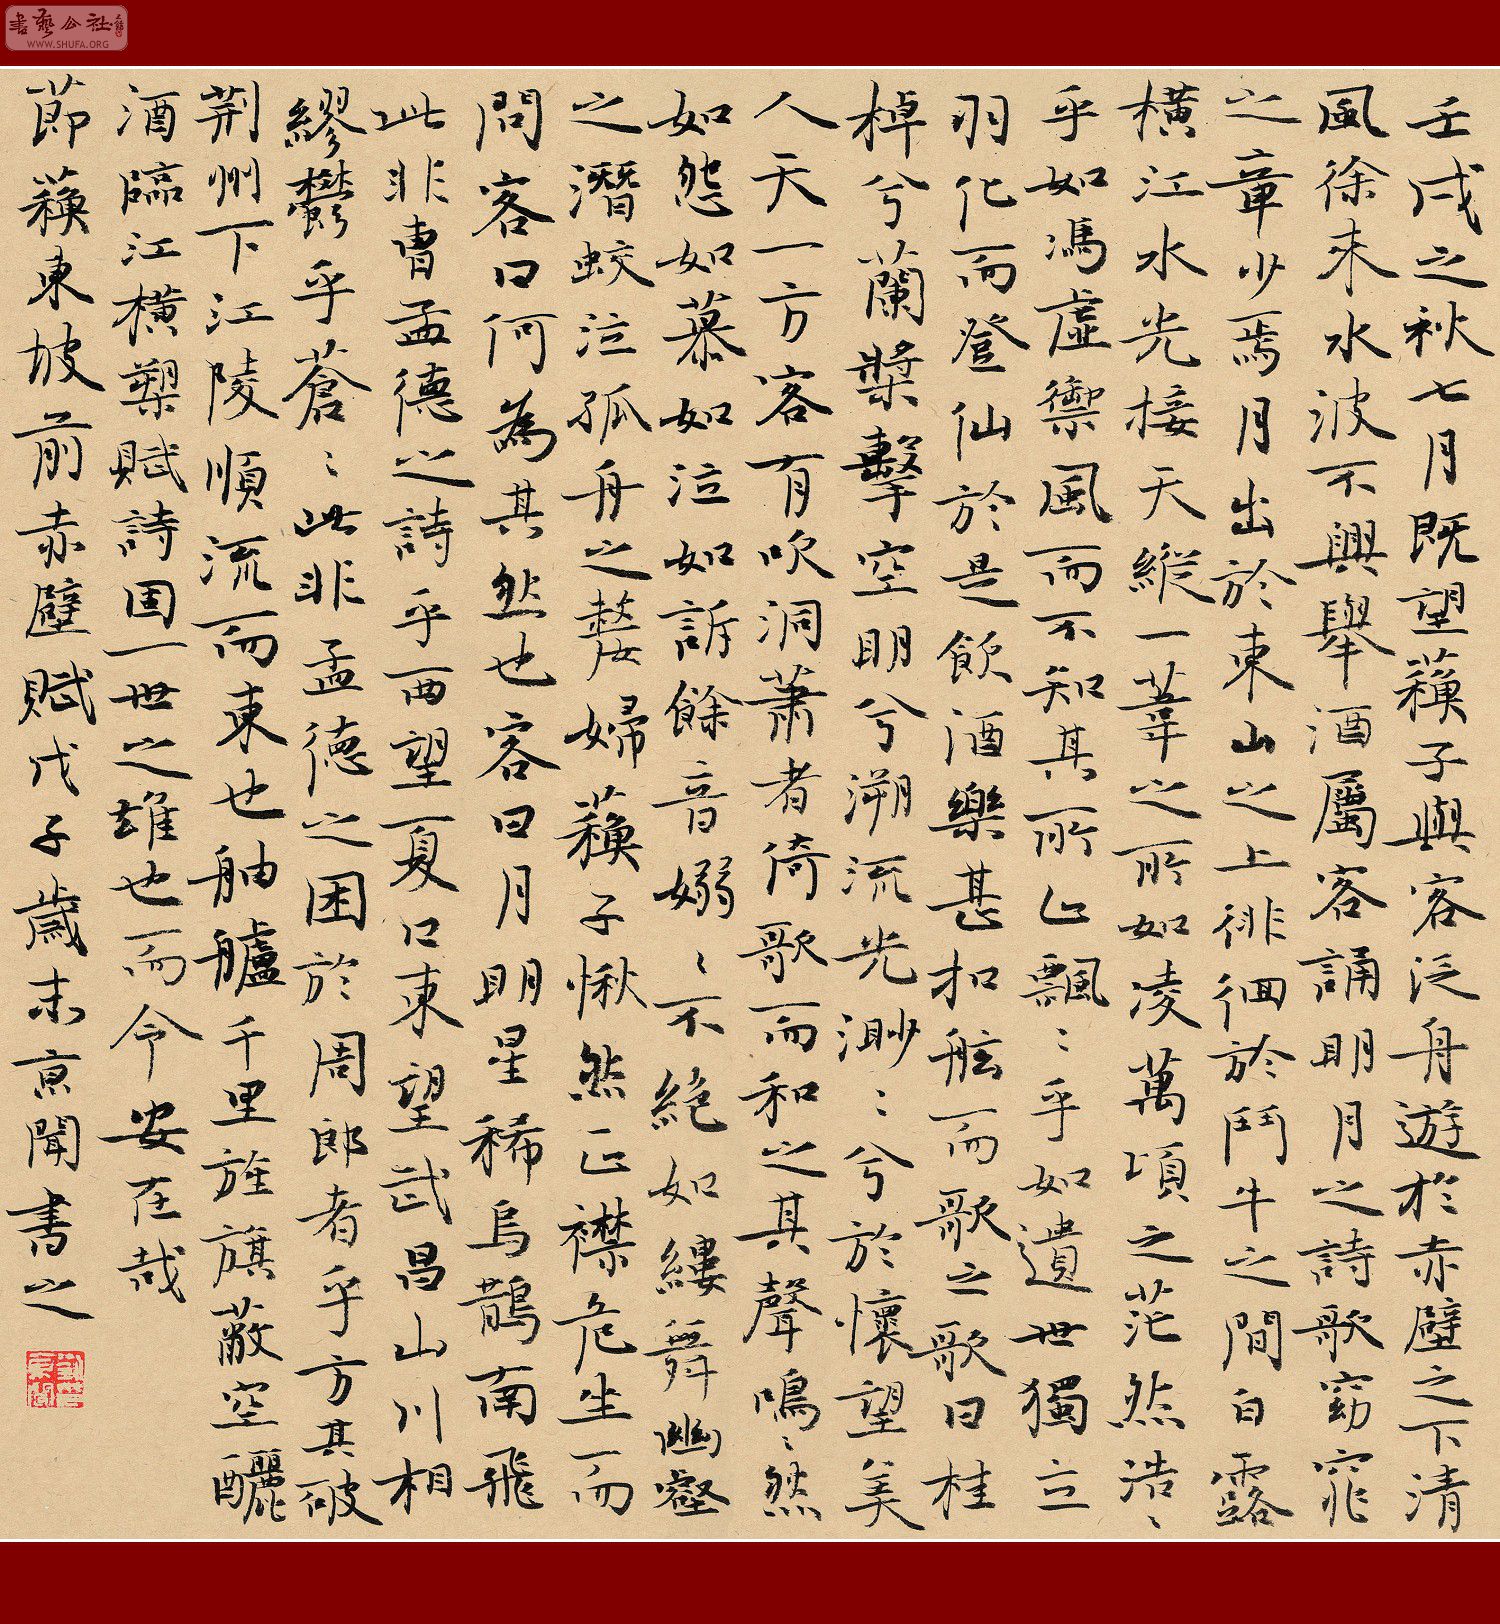 書藝公社
WWW.SHUFA.ORG
壬戌之秋七月既望蘓子與客泛舟遊於赤壁之下清
風徐来水波不興舉酒屬客誦明月之詩歌窈窕
之章少焉月出於東山之上徘徊於鬥牛之間白露
橫江水光接天縱一葦之所如凌萬頃之茫然浩〻
乎如馮虛禦風而不知其所止飄〻乎如遺世獨立
羽化而登仙於是飲酒樂甚扣舷而歌之歌曰桂
棹兮蘭槳擊空明兮溯流光渺〻兮於懷望美
人天一方客有吹洞蕭者倚歌而和之其聲鳴〻然
如怨如慕如泣如訴餘音嫋〻不絕如縷舞幽壑
之潛蛟泣孤舟之嫠婦蘓子愀然正襟危坐而
問客曰何為其然也客曰月明星稀烏鵲南飛
此非曹孟德之詩乎西望夏口東望武昌山川相
繆鬱乎蒼〻此非孟德之困於周郎者乎方其破
荆州下江陵順流而東也舳艫千里旌旗蔽空釃
酒臨江橫槊賦詩固一世之雄也而今安在哉
節蘓東坡前赤壁賦戊子歲末京聞書之